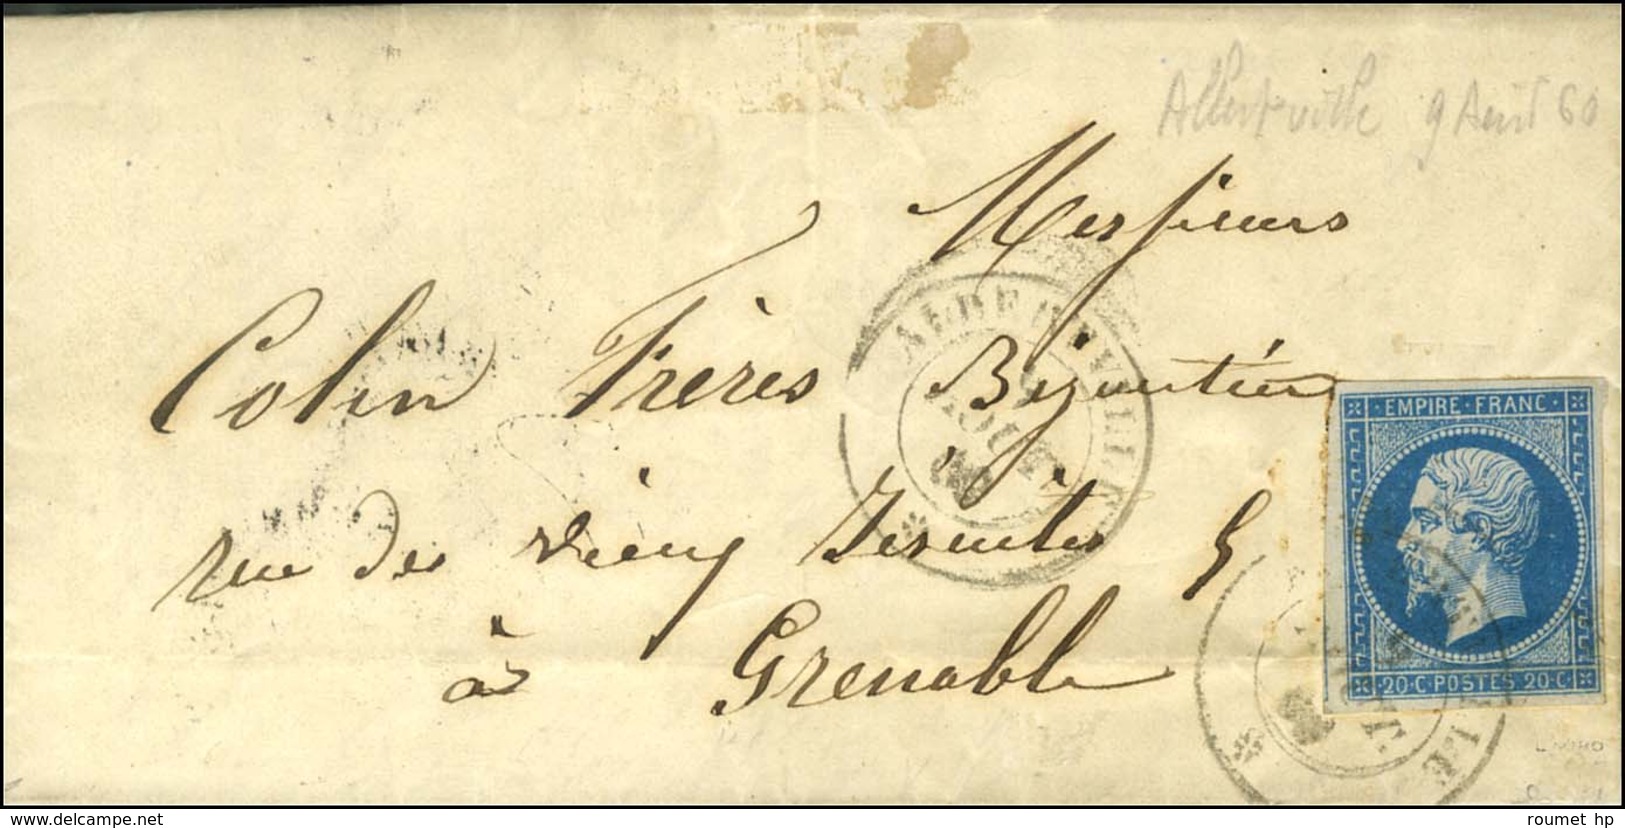 Albertville 9 Août 60
Messieurs
Colin Frères Bijoutiers
rue des vieux Jésuites 5
à Grenoble
ALBERTVILLE
AOUT
60
EMPIRE · FRANC ·
20 · C POSTES 20 · C
LLE
delcampe.net
roumet hp